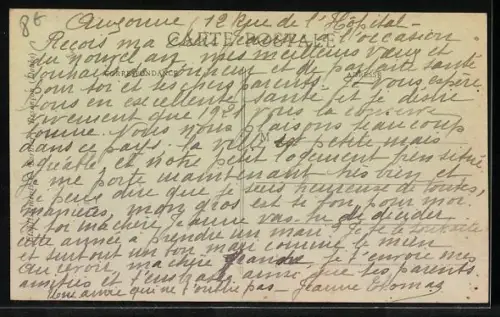 8t
Auxonne, 12 Rue de l'Hôpital-
Reçois ma chère à l'occasion
CARTE POSTALE
du nouvel an, mes meilleurs vœux et
souhaits de bonheur et de parfaite santé
CORRESPONDANCE
ADRESSE
pour toi et tes chers parents. Je vous espère
tous en excellente santé et je désire
vivement que 1921 vous la conserve
bonne. Nous nous plaisons beaucoup
dans ce pays. la ville est petite mais
agréable, et notre petit logement bien situé
Je me porte maintenant très bien et
je peux dire que je suis heureuse de toutes
manières, mon gros est si bon pour moi
et toi ma chère Jeanne vas-tu te décider
cette année à prendre un mari? Je te le souhaite
et surtout un bon mari comme le mien
Au revoir ma chère grande je t'envoie mes
amitiés et t'embrasse ainsi que tes parents.
Une amie qui ne t'oublie pas - Jeanne